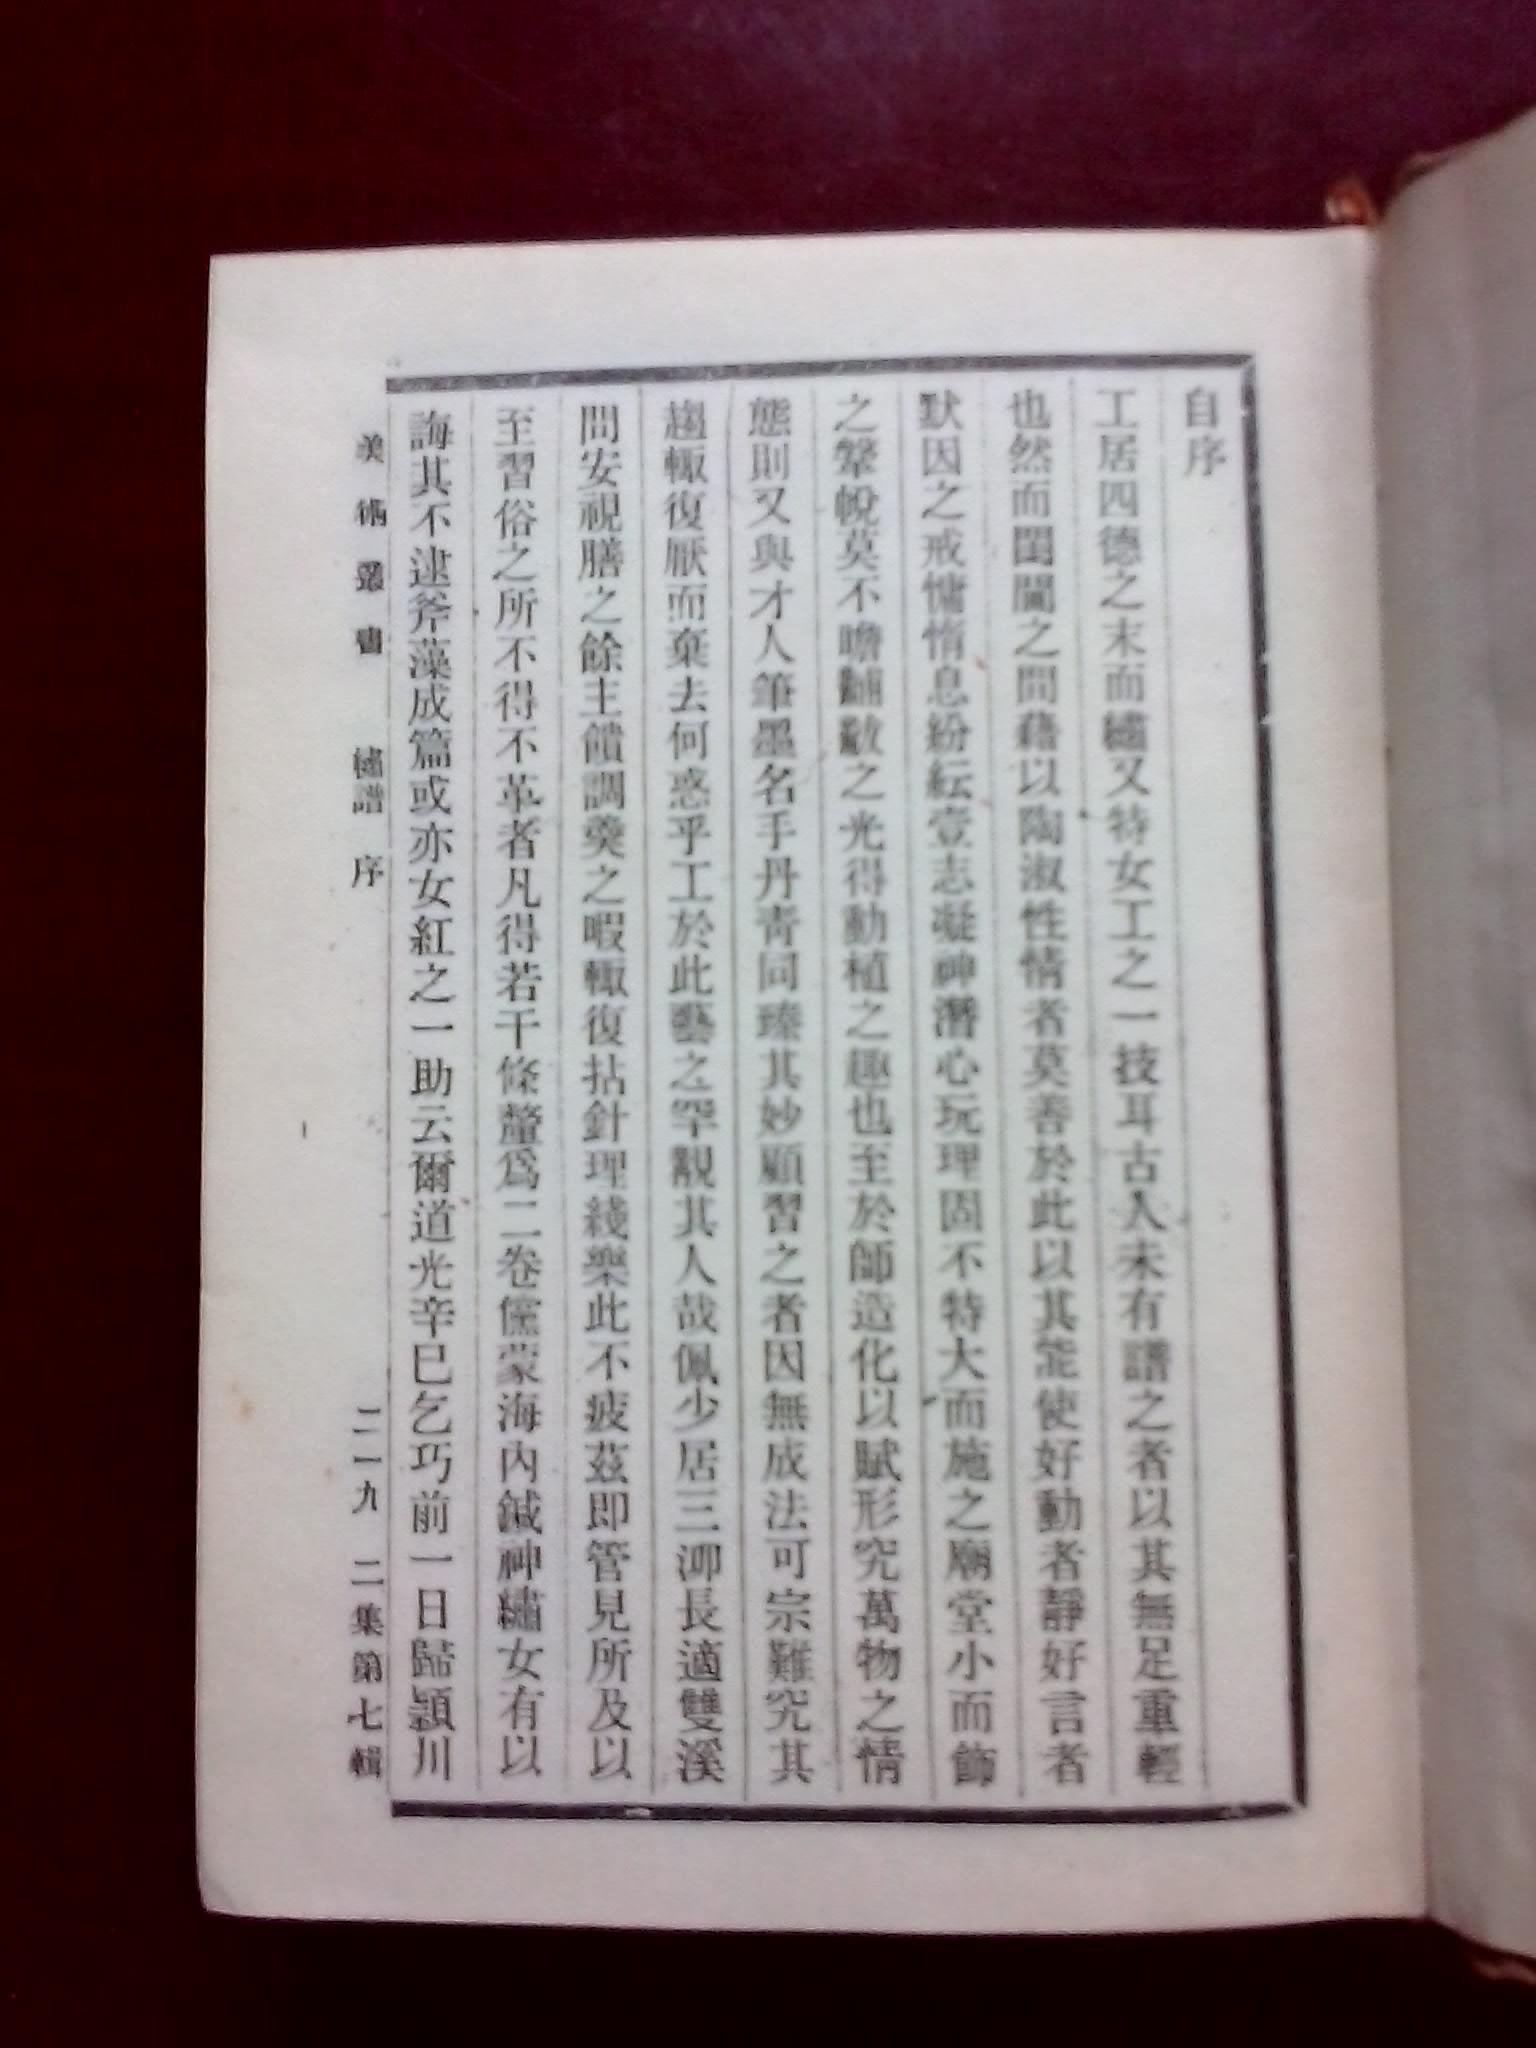 自序
工居四德之末而繡又特女工之一技耳古人未有譜之者以其無足重輕
也然而閨閫之間藉以陶淑性情者莫善於此以其能使好動者靜好言者
默因之戒慵惰息紛紜壹志凝神潛心玩理固不特大而施之廟堂小而飾
之鞶帨莫不瞻黼黻之光得動植之趣也至於師造化以賦形究萬物之情
態則又與才人筆墨名手丹青同臻其妙顧習之者因無成法可宗難究其
趨輙復厭而棄去何惑乎工於此藝之罕覯其人哉佩少居三泖長適雙溪
問安視膳之餘主饋調羹之暇輙復拈針理綫樂此不疲茲即管見所及以
至習俗之所不得不革者凡得若干條釐爲二卷儻蒙海內鍼神繡女有以
誨其不逮斧藻成篇或亦女紅之一助云爾道光辛巳乞巧前一日歸潁川
美術叢書 繡譜 序 二一九 二集第七輯